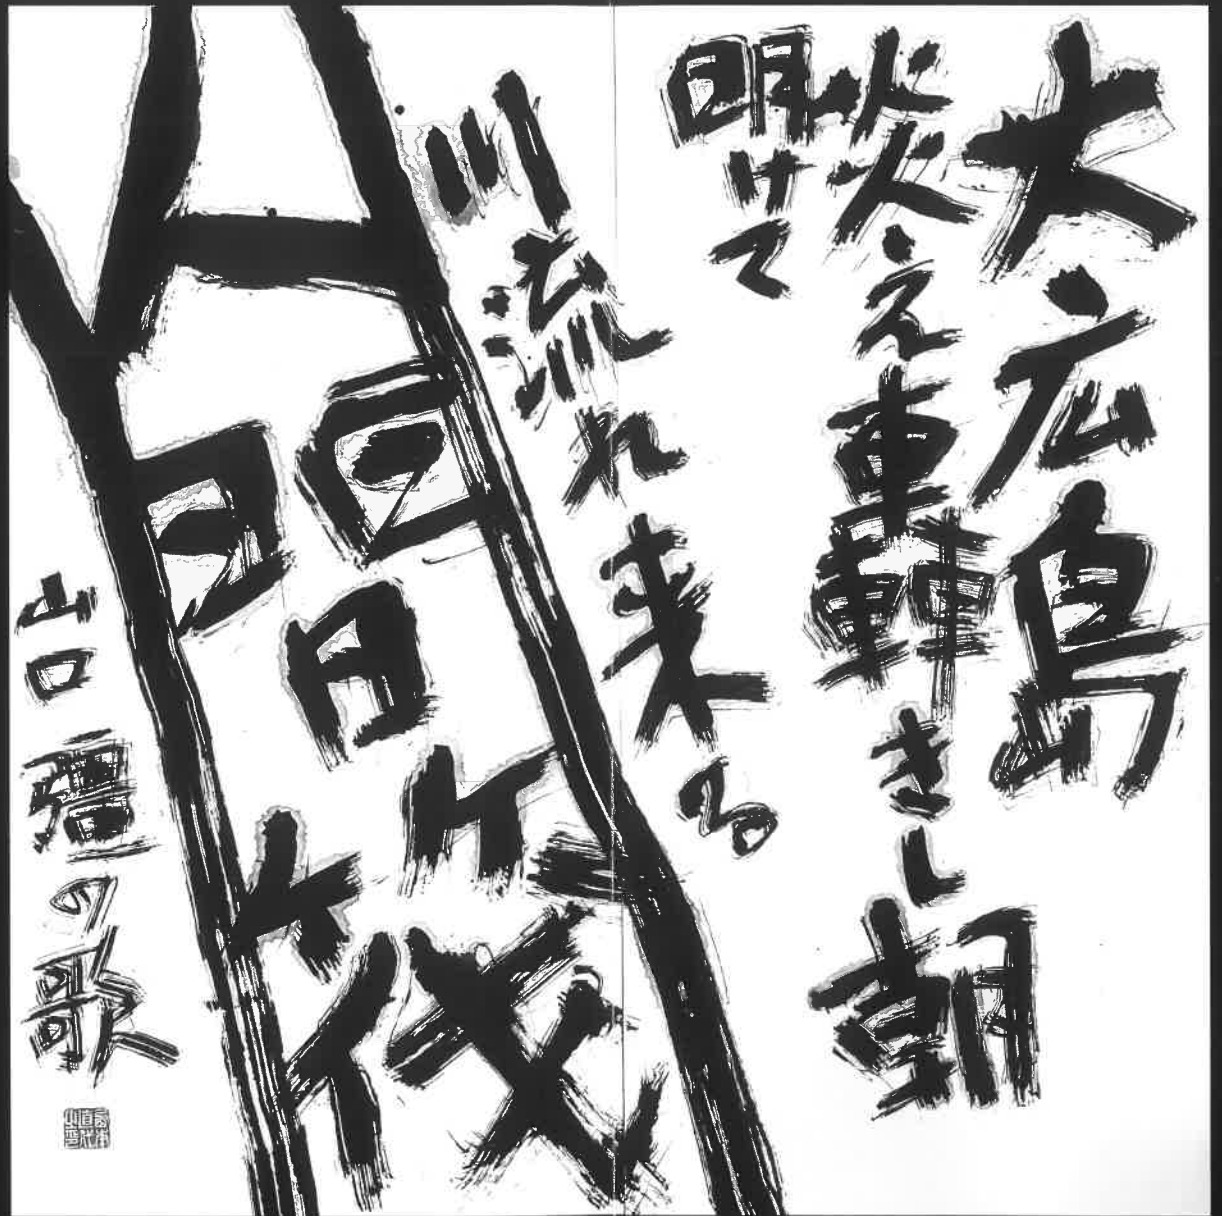 大広島
炎え轟きし朝
明けて
川流れ来る
人間筏
山口彊の歌